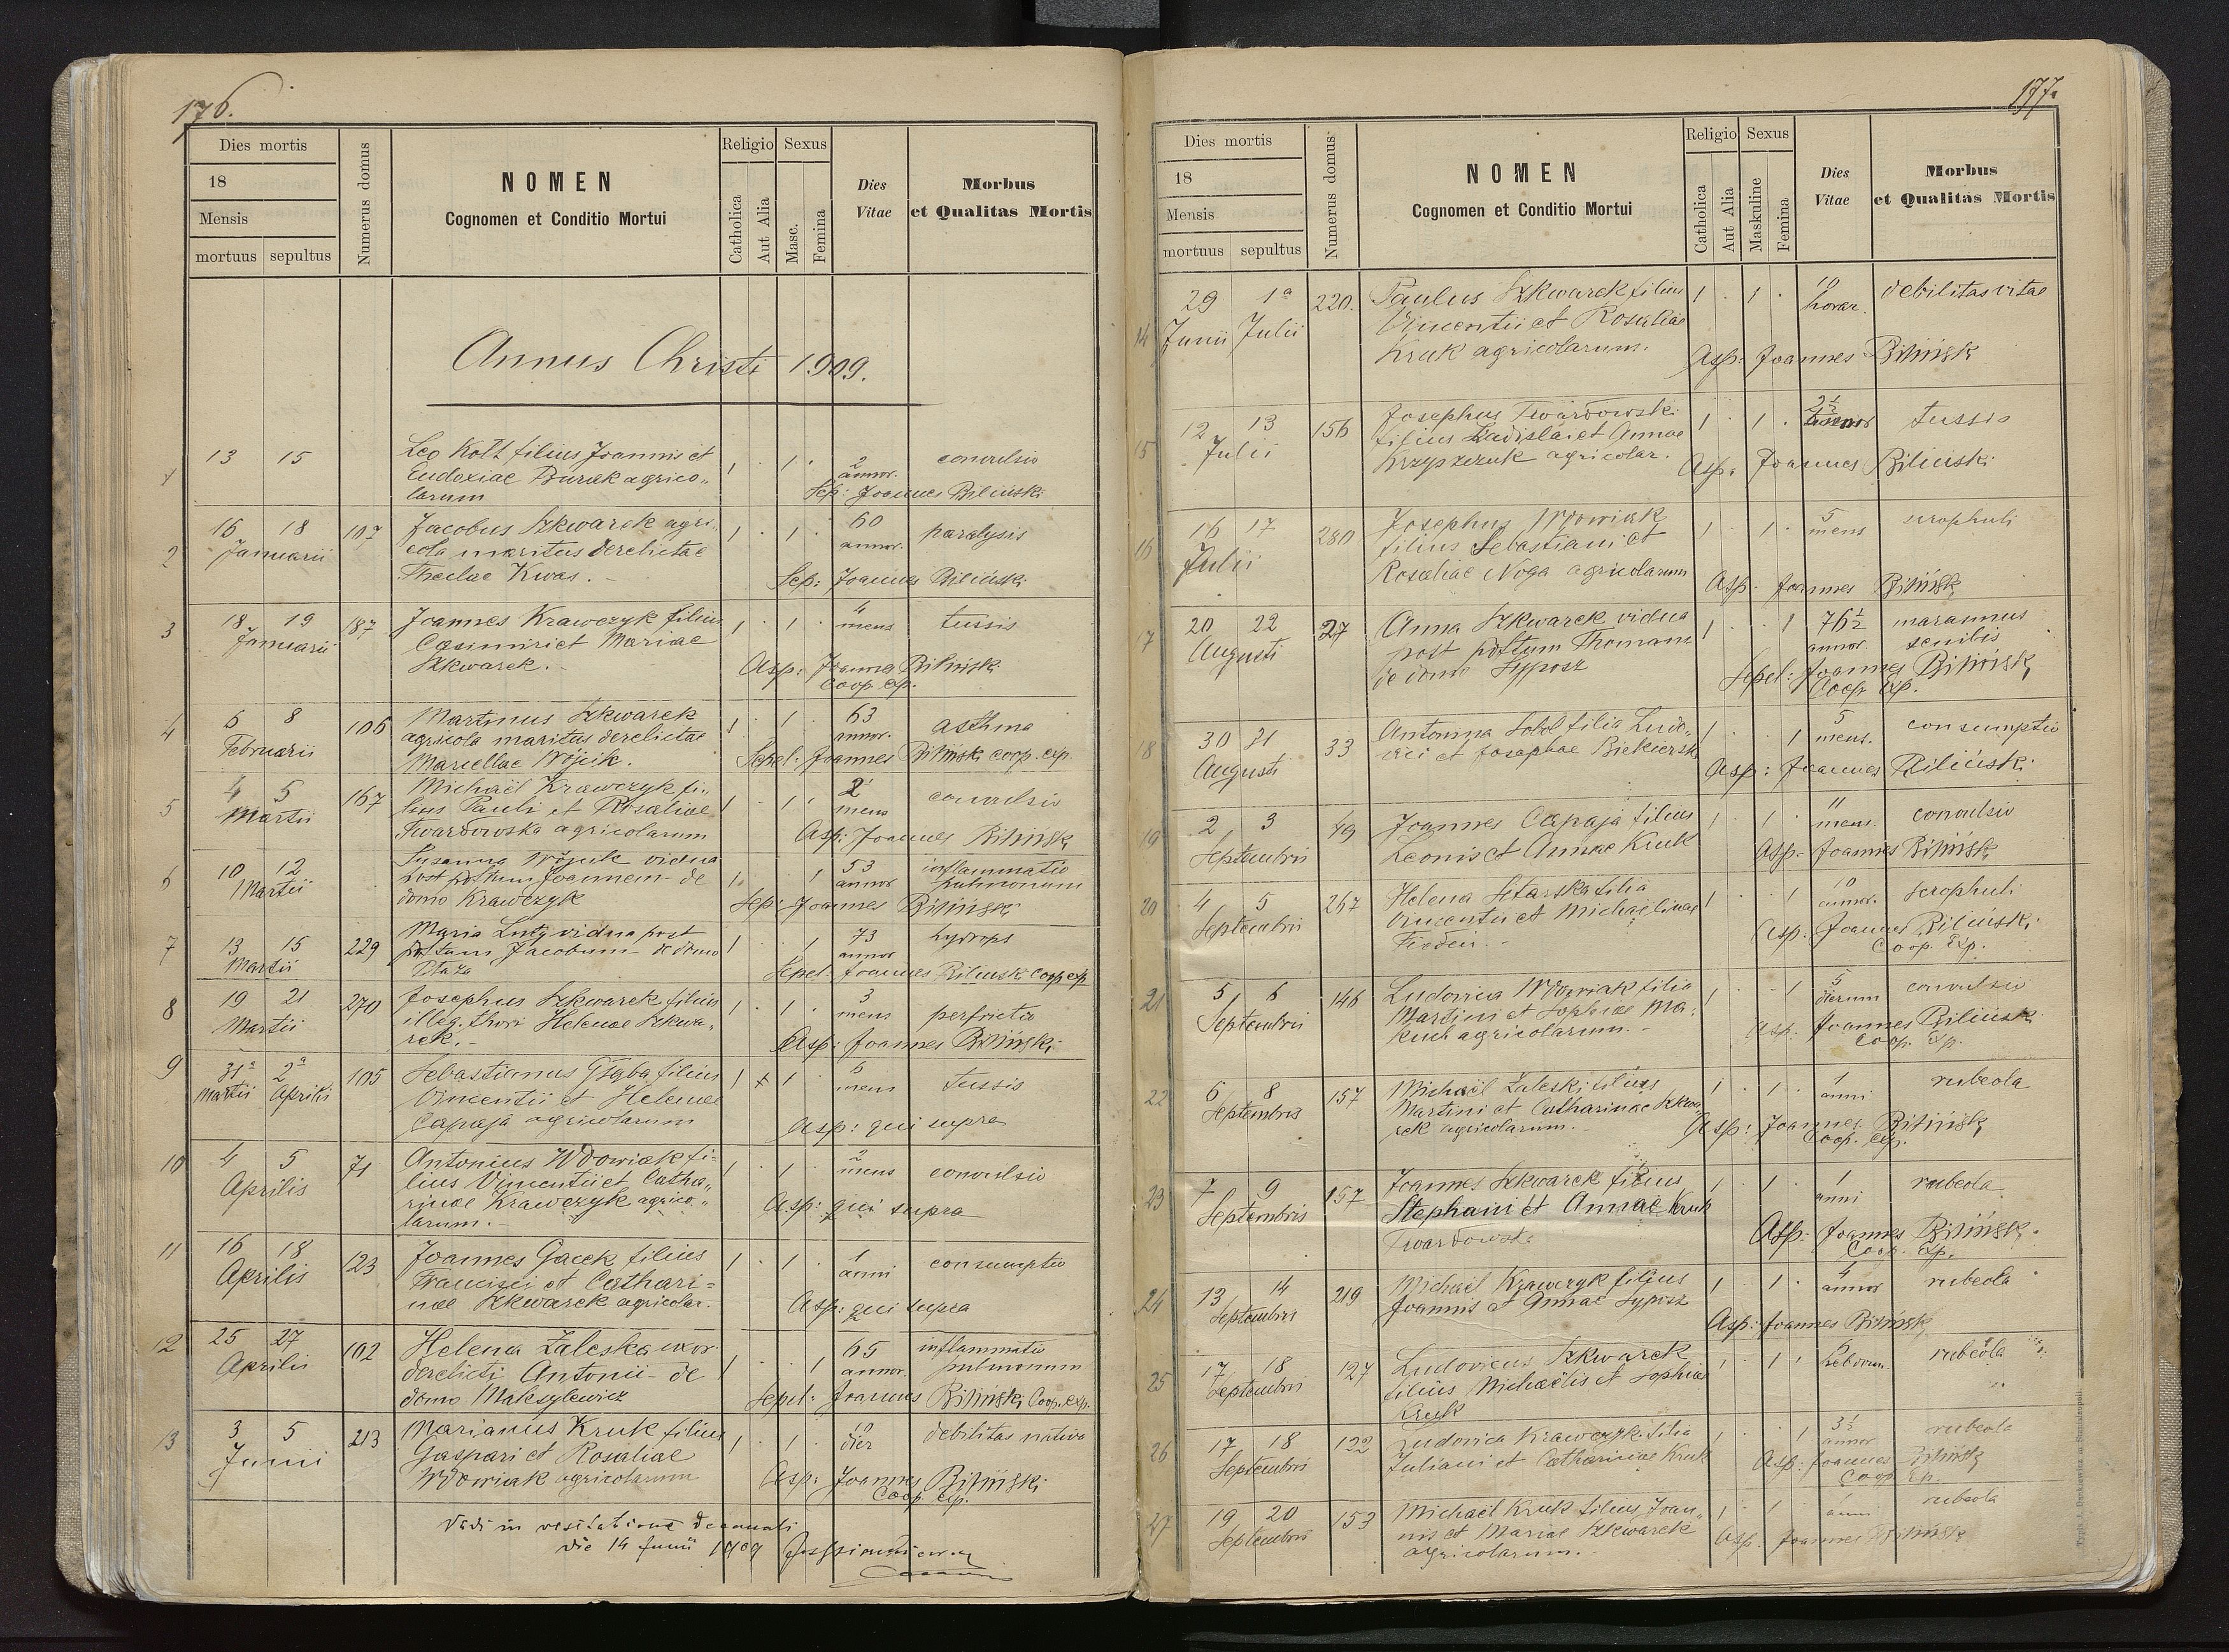 176.
Dies mortis
18
Mensis
mortuus sepultus
Numerus domus
NOMEN
Cognomen et Conditio Mortui
Religio
Catholica
Aut Alia
Sexus
Masc.
Femina
Dies
Vitae
Morbus
et Qualitas Mortis
Annus Christi 1909.
1 13 15 Leo Kott filius Joannis et 1 1 2 convulsio
Eudoxiae Burak agrico„ annor.
larum Sep: Joannes Biliński
2 16 18 107 Jacobus Szkwarek agri„ 1 1 60 paralysis
Januarii cola maritus derelictae annor.
Theclae Kwas. Sep: Joannes Biliński
3 18 19 187 Joannes Krawczyk filius 1 1 4 tussis
Januarii Casimiri et Mariae mens
Szkwarek. Asp: Joannes Biliński
Coop. exp.
4 6 8 106 Martinus Szkwarek 1 1 63 asthma
Februarii agricola maritus derelictae annor.
Marcellae Wójcik. Sepel: Joannes Biliński coop. exp.
5 4 5 167 Michaël Krawczyk fi„ 1 1 2 convulsio
Martii lius Pauli et Rosaliae mens
Twardowska agricolarum Asp: Joannes Biliński
6 10 12 Susanna Wójcik vidua 1 1 53 inflammatio
Martii post Joannem de annor pulmonum
domo Krawczyk Sep: Joannes Biliński
7 13 15 229 Maria vidua post 1 1 73 hydrops
Martii Jacobum de domo annor
Sepel: Joannes Biliński Coop exp
8 19 21 270 Josephus Szkwarek filius 1 1 3 perfrictio
Martii illeg. thori Helenae Szkwa„ mens
rek. Asp: Joannes Biliński
9 31ª 2ª 105 Sebastianus filius 1 1 6 tussis
Martii Aprilis Vincentii et Helenae mens
Capaja agricolarum Asp: qui supra
10 4 5 71 Antonius Wdowiak fi= 1 1 2 convulsio
Aprilis lius Vincentii et Catha„ mens
rinae Krawczyk agrico„ Asp: qui supra
larum.
11 16 18 123 Joannes Gacek filius 1 1 1 consumptio
Aprilis Francisci et Cathari= anni
nae Szkwarek agricolar. Asp: qui supra
12 25 27 102 Helena Zaleska uxor 1 1 65 inflammatio
Aprilis derelicti Antonii de annor. pulmonum
domo Sepel: Joannes Biliński Coop. exp.
13 3 5 213 Marianus Kruk filius 1 1 10 debilitas nativa
Junii Gaspari et Rosaliae dier
Wdowiak agricolarum Asp: Joannes Biliński
Coop exp.
Vidi in visitatione decanali
die 14 Junii 1909
177.
Dies mortis
18
Mensis
mortuus sepultus
Numerus domus
NOMEN
Cognomen et Conditio Mortui
Religio
Catholica
Aut Alia
Sexus
Maskuline
Femina
Dies
Vitae
Morbus
et Qualitas Mortis
14 29 1ª 220. Paulus Szkwarek filius 1 1 10 debilitas vitae
Junii Julii Vincentii et Rosaliae horar.
Kruk agricolarum. Asp: Joannes Biliński
15 12 13 156 Josephus Twardowski 1 1 2½ tussis
Julii filius Ladislai et Annae
Krzyszczuk agricolar. Asp: Joannes Biliński
16 16 17 280 Josephus Wdowiak 1 1 5 scrophuli
Julii filius Sebastiani et mens
Rosaliae Noga agricolarum Asp: Joannes Biliński
17 20 22 27 Anna Szkwarek vidua 1 1 76½ marasmus
Augusti post Thomam annor. senilis
de domo Syposz Sepel: Joannes Biliński
Coop exp.
18 30 31 33 Antonina Soból filia Ludo„ 1 1 5 consumptio
Augusti vici et Josephae mens.
Asp: Joannes Biliński
19 2 3 49 Joannes Capaja filius 1 1 11 convulsio
Septembris Leonis et Annae Kruk mens.
Asp: Joannes Biliński
20 4 5 267 Helena Sitarska filia 1 1 10 scrophuli
Septembris Vincentii et Michaelinae annor.
Asp: Joannes Biliński
Coop. Exp.
21 5 6 146 Ludovica Wdowiak filia 1 1 5 convulsio
Septembris Martini et Sophiae Ma„ dierum
kuch agricolarum. Asp: Joannes Biliński
Coop. Exp.
22 6 8 157 Michaël Zaleski filius 1 1 1 rubeola
Septembris Martini et Catharinae Szkwa„ anni
rek agricolarum. Asp: Joannes Biliński
Coop. exp.
23 7 9 157 Joannes Szkwarek filius 1 1 1 rubeola
Septembris Stephani et Annae Kruk anni
Twardowska Asp: Joannes Biliński
Coop. Exp.
24 13 14 219 Michaël Krawczyk filius 1 1 4 rubeola
Septembris Joannis et Annae Syposz annor
Asp: Joannes Biliński
25 17 18 127 Ludovicus Szkwarek 1 1 6 rubeola
Septembris filius Michaëlis et Sophiae hebdom.
Kruk
26 17 18 122 Ludovica Krawczyk filia 1 1 3½ rubeola
Septembris Juliani et Catharinae Kruk annor
Asp: Joannes Biliński
Coop Exp.
27 19 20 153 Michaël Kruk filius Joan„ 1 1 1 rubeola
Septembris nis et Mariae Szkwarek anni
agricolarum. Asp. Joannes Biliński